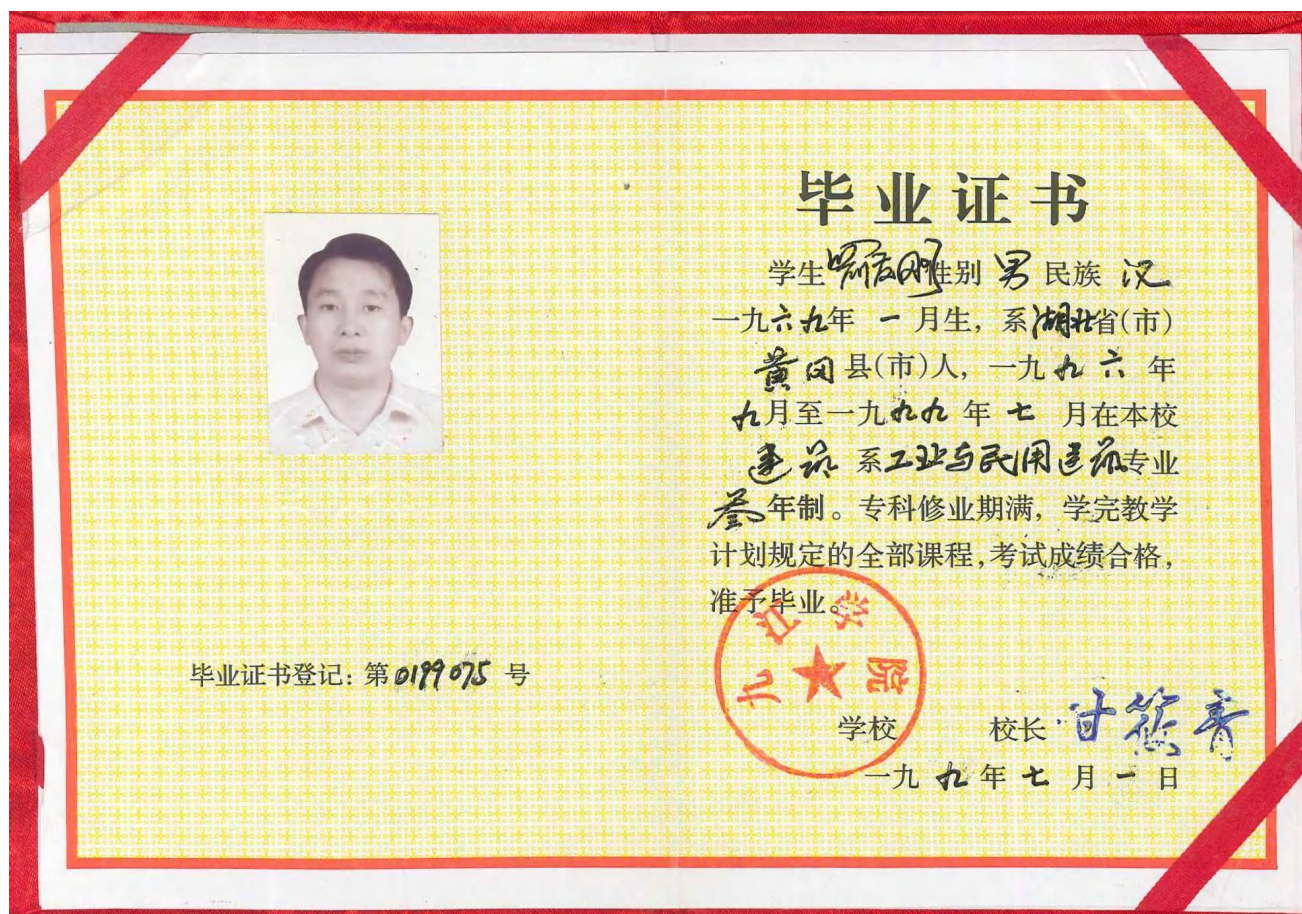 毕业证书
学生 罗友刚 性别 男 民族 汉
一九六九年 一 月生，系湖北省(市)
黄冈县(市)人，一九九六 年
九月至一九九九 年 七 月在本校
建筑 系工业与民用建筑专业
叁年制。专科修业期满，学完教学
计划规定的全部课程，考试成绩合格，
准予毕业。
九江学院
学校 校长 甘筱青
一九 九 年 七 月 一 日
毕业证书登记：第 0199075 号